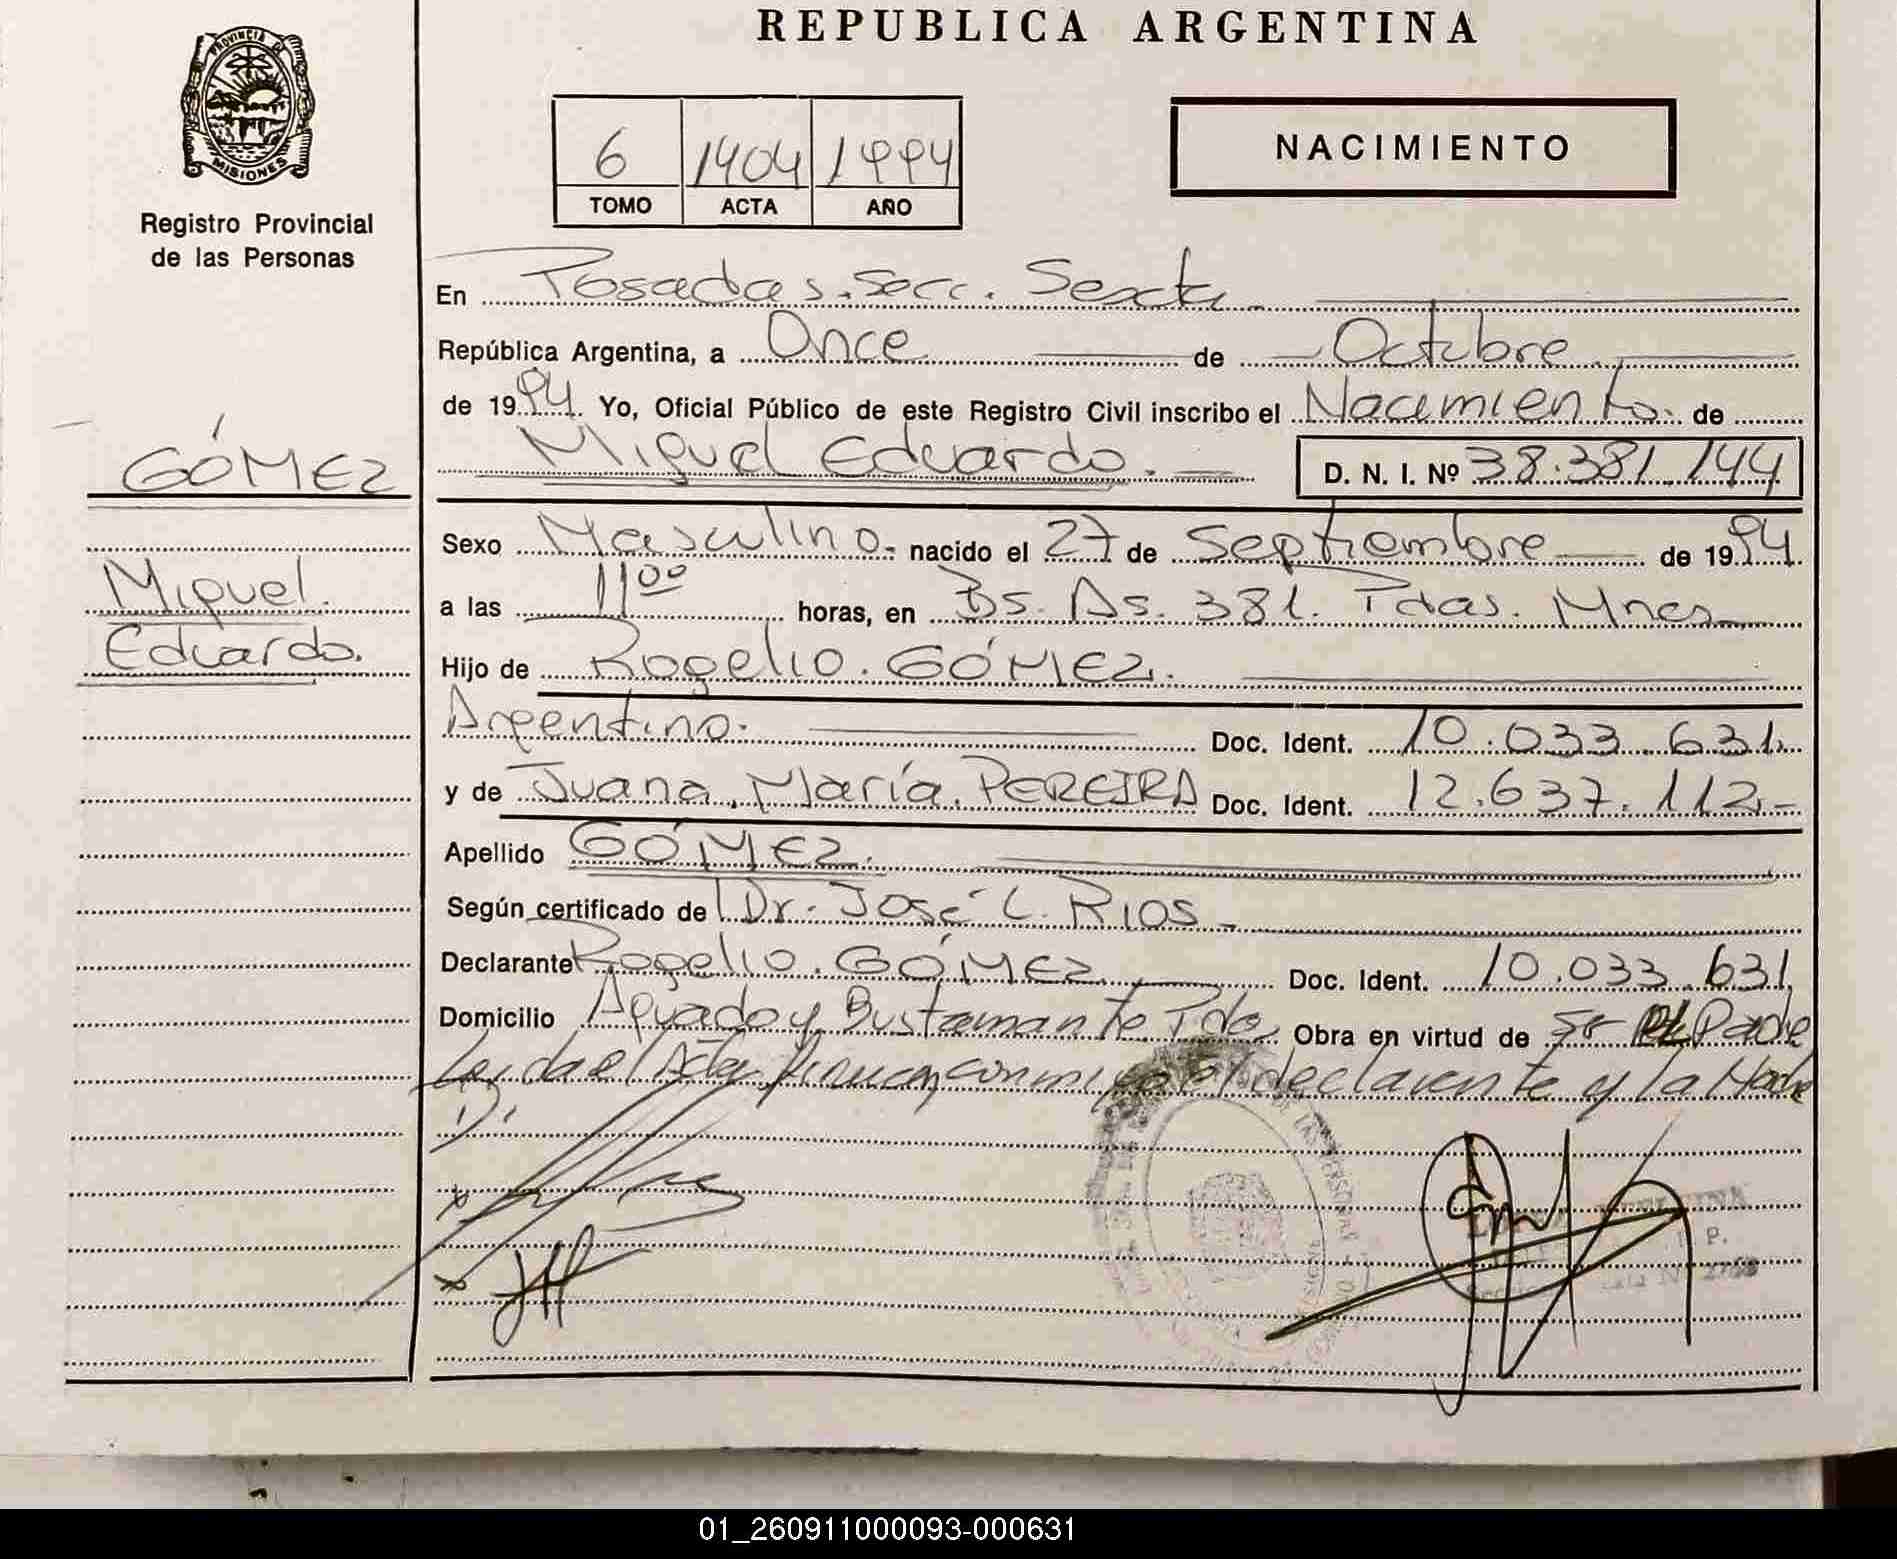 REPUBLICA ARGENTINA
PROVINCIA D
MISIONES
Registro Provincial
de las Personas
6 1404 1994
TOMO ACTA AÑO
NACIMIENTO
En Posadas. Secc. Sexta.
República Argentina, a Once de Octubre
de 1994. Yo, Oficial Público de este Registro Civil inscribo el Nacimiento. de
Miguel Eduardo. D. N. I. Nº 38.381.144
GÓMEZ
Miguel.
Eduardo.
Sexo Masculino. nacido el 27 de Septiembre de 1994.
a las 11⁰⁰ horas, en Bs. As. 381. Pdas. Mnes.
Hijo de Rogelio. GÓMEZ.
Argentino. Doc. Ident. 10.033.631.
y de Juana María. PEREIRA Doc. Ident. 12.637.112.-
Apellido GÓMEZ.
Según certificado de Dr. José L. RIOS
Declarante Rogelio. GÓMEZ Doc. Ident. 10.033.631
Domicilio Aguado y Bustamante Pdas. Obra en virtud de ser el Padre
Leida el Acta firman conmigo el declarante y la Madre
01_260911000093-000631